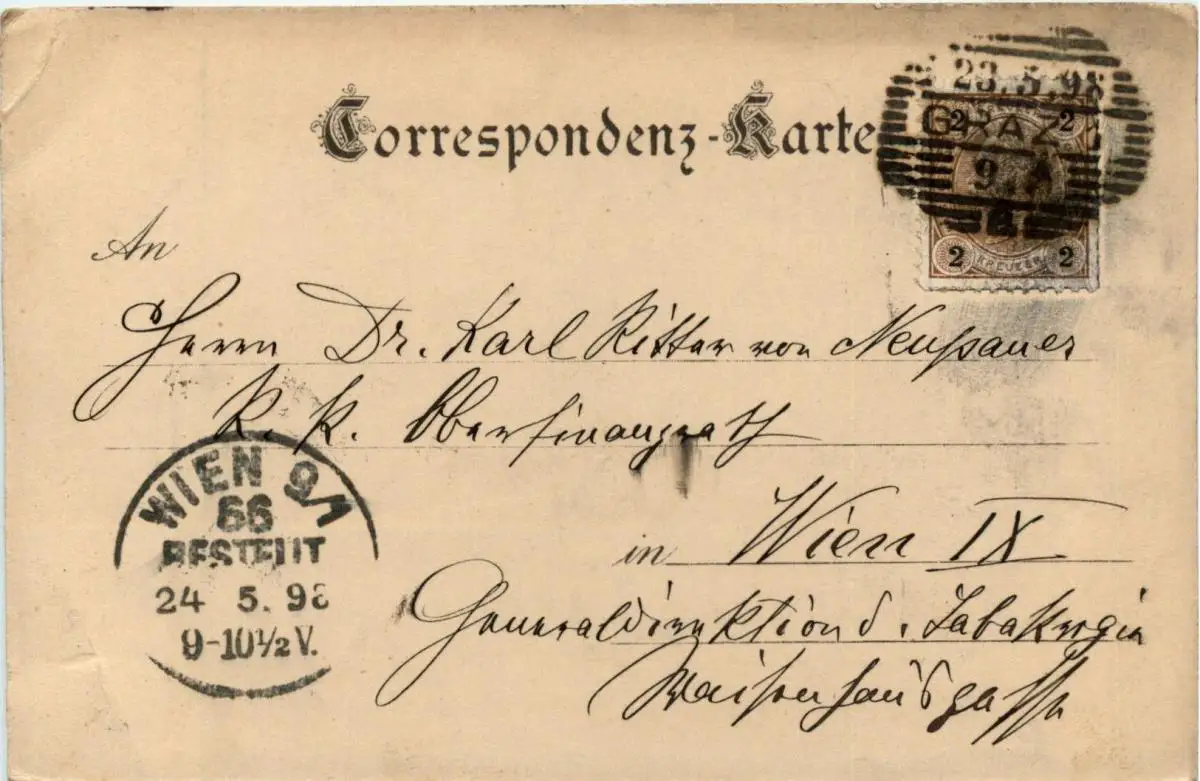 Correspondenz-Karte
23.5.98
GRAZ
9.
2 2
2 KREUZER 2
An
Herrn Dr. Karl Ritter von Neupauer
K. K. Oberfinanzrath
in Wien IX
Generaldirektion d. Tabakregie
Waisenhausgasse
WIEN 9/1
66
BESTELLT
24 5. 98
9-10½V.